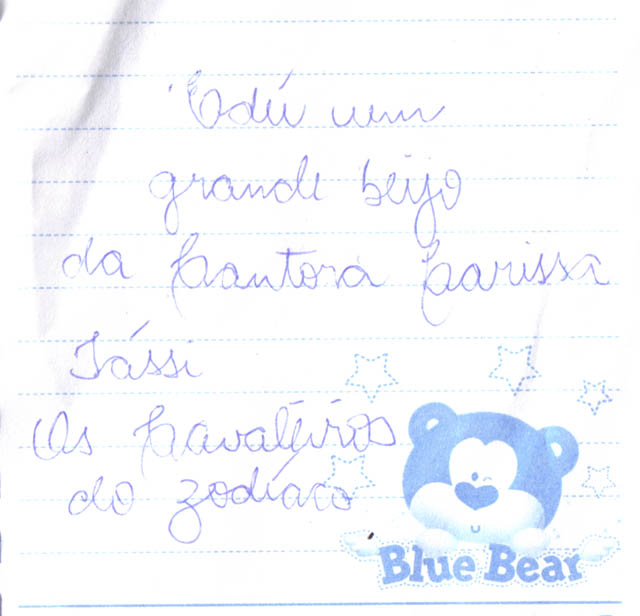 Edú um
grande beijo
da Cantora Larissa
Tássi
Os Cavaleiros
do zodíaco
Blue Bear